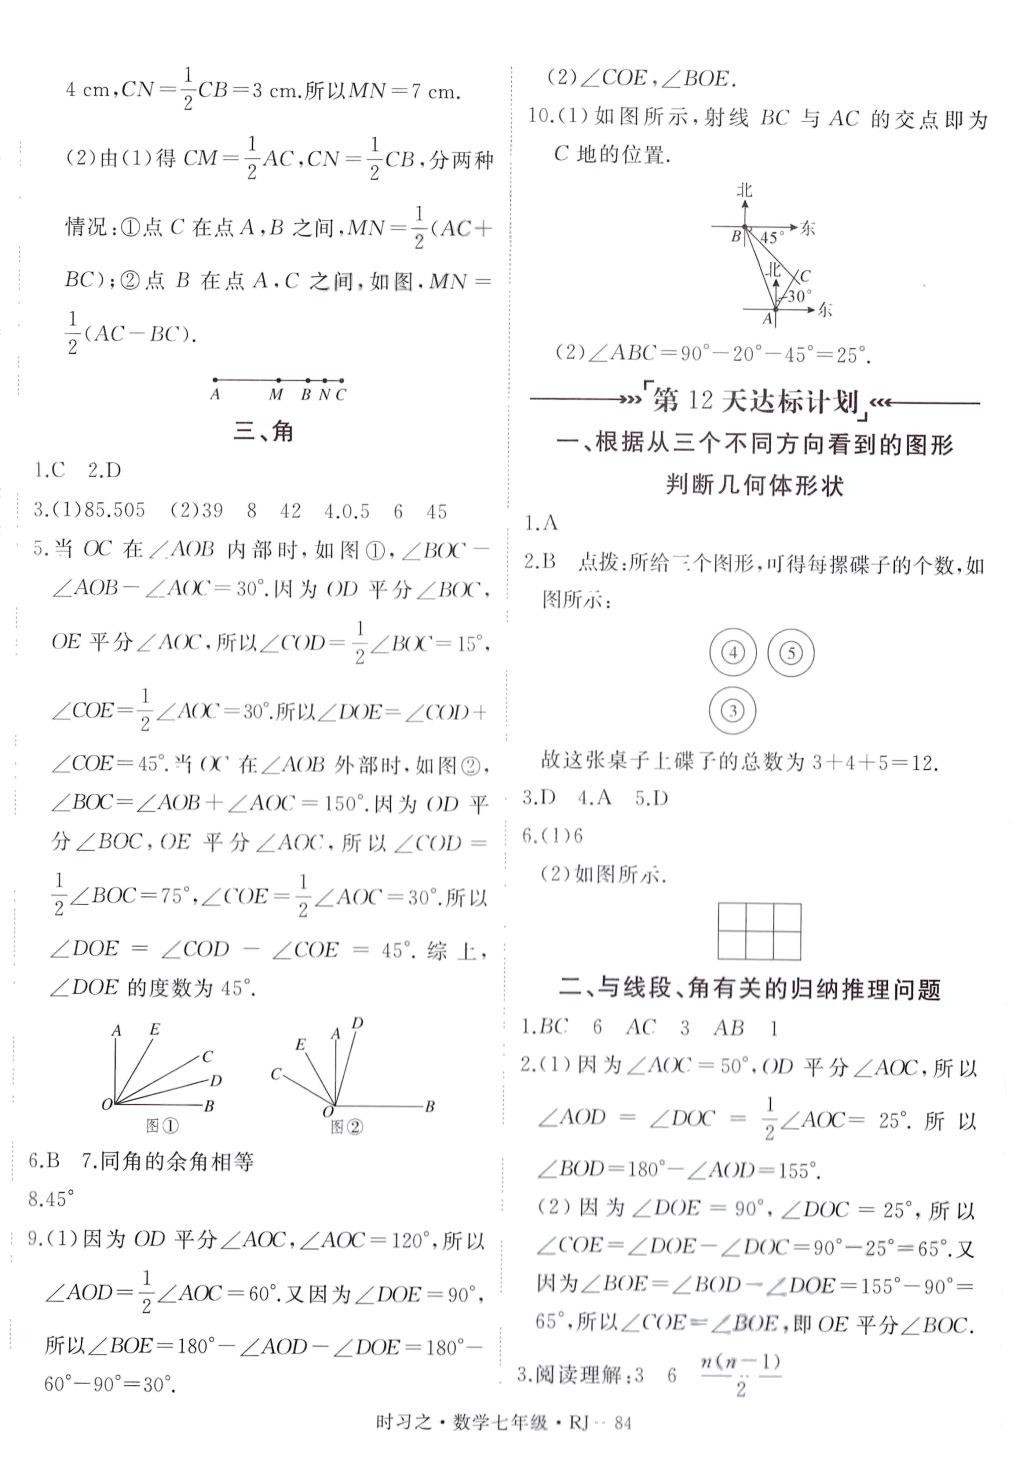 4 cm,CN=1/2CB=3 cm.所以MN=7 cm.
(2)由(1)得 CM=1/2AC,CN=1/2CB,分两种
情况:①点 C 在点 A,B 之间,MN=1/2(AC+
BC);②点 B 在点 A,C 之间,如图,MN=
1/2(AC-BC).
A M B N C
三、角
1.C 2.D
3.(1)85.505 (2)39 8 42 4.0.5 6 45
5.当 OC 在∠AOB 内部时,如图①,∠BOC=
∠AOB-∠AOC=30°.因为 OD 平分∠BOC,
OE 平分∠AOC,所以∠COD=1/2∠BOC=15°,
∠COE=1/2∠AOC=30°.所以∠DOE=∠COD+
∠COE=45°.当 OC 在∠AOB 外部时,如图②,
∠BOC=∠AOB+∠AOC=150°.因为 OD 平
分∠BOC,OE 平分∠AOC,所以∠COD=
1/2∠BOC=75°,∠COE=1/2∠AOC=30°.所以
∠DOE=∠COD-∠COE=45°.综上,
∠DOE 的度数为 45°.
A E C D O B
图①
E A D C O B
图②
6.B 7.同角的余角相等
8.45°
9.(1)因为 OD 平分∠AOC,∠AOC=120°,所以
∠AOD=1/2∠AOC=60°.又因为∠DOE=90°,
所以∠BOE=180°-∠AOD-∠DOE=180°-
60°-90°=30°.
(2)∠COE,∠BOE.
10.(1)如图所示,射线 BC 与 AC 的交点即为
C 地的位置.
北
B 45° 东
北 C
30°
A 东
(2)∠ABC=90°-20°-45°=25°.
第 12 天达标计划
一、根据从三个不同方向看到的图形
判断几何体形状
1.A
2.B 点拨:所给三个图形,可得每摞碟子的个数,如
图所示:
④ ⑤
③
故这张桌子上碟子的总数为 3+4+5=12.
3.D 4.A 5.D
6.(1)6
(2)如图所示.
二、与线段、角有关的归纳推理问题
1.BC 6 AC 3 AB 1
2.(1)因为∠AOC=50°,OD 平分∠AOC,所以
∠AOD=∠DOC=1/2∠AOC=25°.所以
∠BOD=180°-∠AOD=155°.
(2)因为∠DOE=90°,∠DOC=25°,所以
∠COE=∠DOE-∠DOC=90°-25°=65°.又
因为∠BOE=∠BOD-∠DOE=155°-90°=
65°,所以∠COE=∠BOE,即 OE 平分∠BOC.
3.阅读理解:3 6 n(n-1)/2
时习之·数学七年级·RJ·84